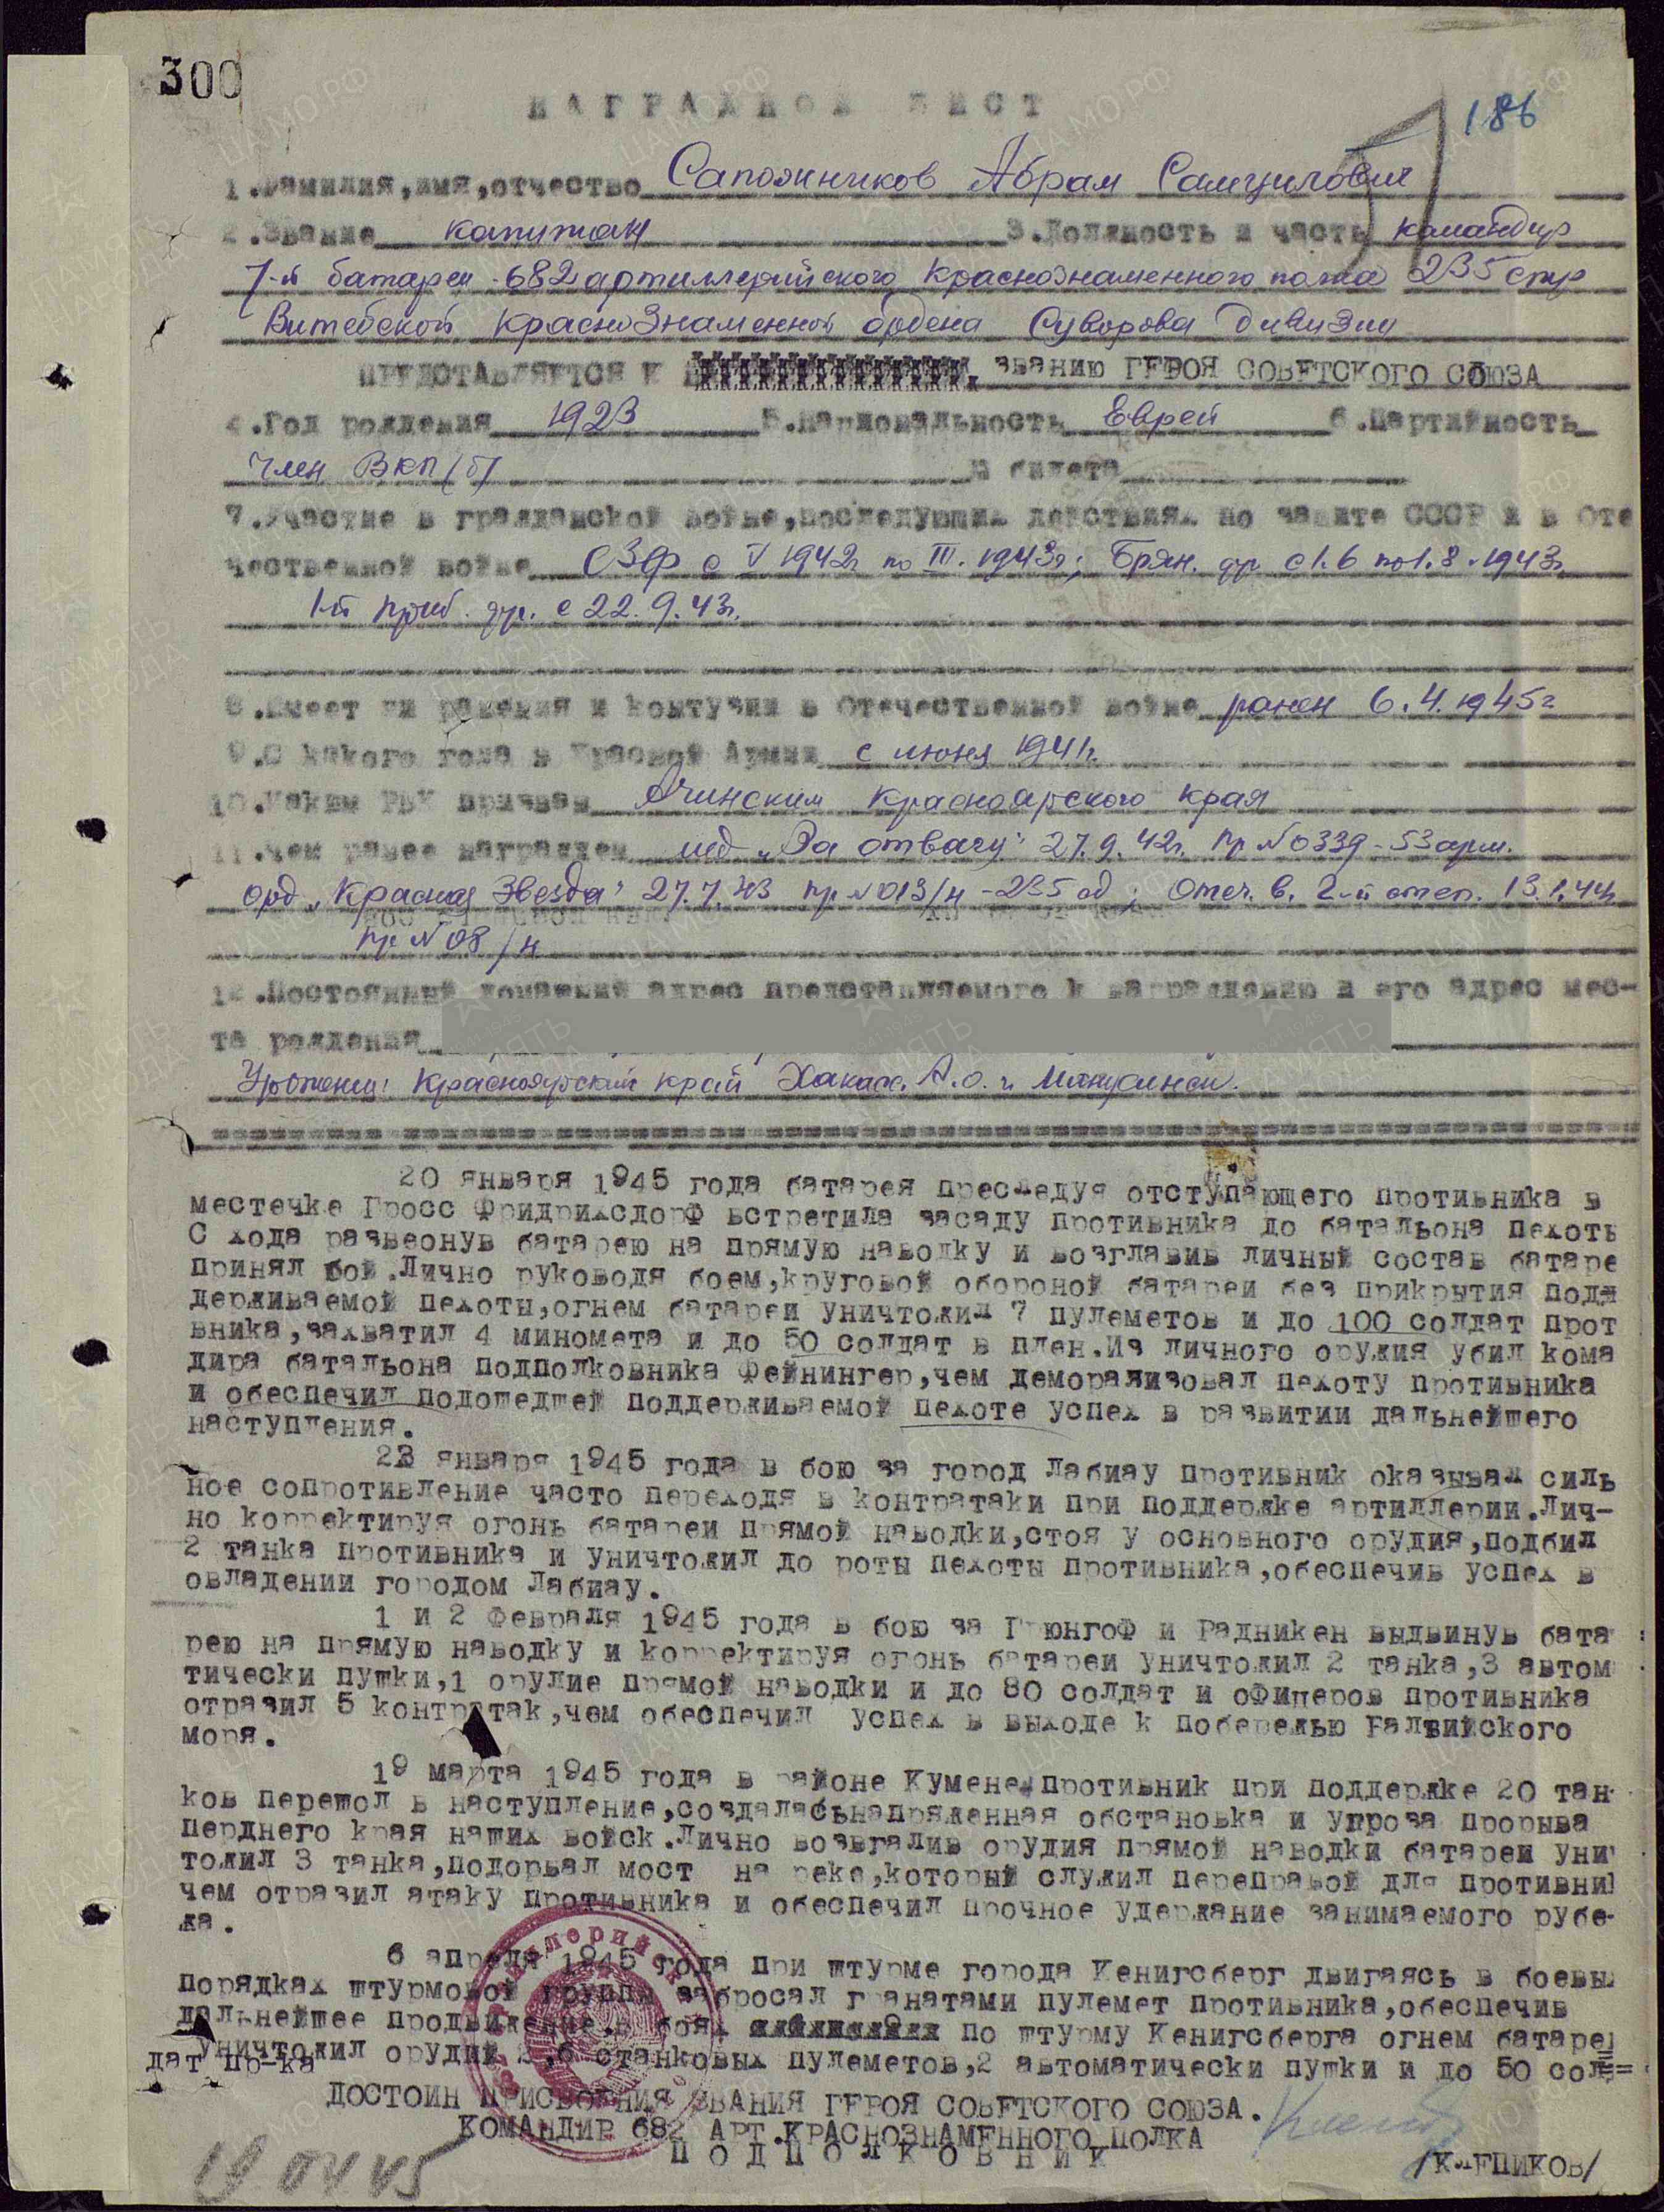 300
НАГРАДНОЙ ЛИСТ
186
1.Фамилия,имя,отчество Сапожников Абрам Самуилович
2.Звание капитан 3.Должность и часть командир
7-й батареи 682 артиллерийского Краснознаменного полка 235 стр
Витебской Краснознаменной ордена Суворова дивизии
ПРЕДСТАВЛЯЕТСЯ К званию ГЕРОЯ СОВЕТСКОГО СОЮЗА
4.Год рождения 1923 5.Национальность Еврей 6.Партийность
Член ВКП(б) № билета
7.Участие в гражданской войне,последующих действиях по защите СССР и в Оте
чественной войне СЗФ с V 1942г по III.1943г; Брян. фр с 1.6 по 1.8.1943г
1-й приб. фр. с 22.9.43г.
8.Имеет ли ранения и контузии в Отечественной войне ранен 6.4.1945г
9.С какого года в Красной Армии с июня 1941г.
10.Каким РВК призван Ачинским Красноярского края
11.Чем ранее награжден мед „За отвагу" 27.9.42г. пр №0339-53арм.
орд „Красная Звезда" 27.7.43 пр №013/н -235 сд; Отеч. в. 2-й степ. 13.1.44г
пр №08/н
12.Постоянный домашний адрес представляемого к награждению и его адрес мес-
та рождения
Уроженец: Красноярский край Хакасс. А.О. г. Минусинск.
20 января 1945 года батарея преследуя отступающего противника в
местечке Гросс Фридрихсдорф встретила засаду противника до батальона пехоты
С хода развеонув батарею на прямую наводку и возглавив личный состав батаре
принял бой.Лично руководя боем,круговой обороной батареи без прикрытия подд
держиваемой пехоты,огнем батареи уничтожил 7 пулеметов и до 100 солдат прот
вника,захватил 4 миномета и до 50 солдат в плен.Из личного оружия убил кома
дира батальона подполковника Фейнингер,чем деморализовал пехоту противника
и обеспечил подошедшей поддерживаемой пехоте успех в развитии дальнейшего
наступления.
23 января 1945 года в бою за город Лабиау противник оказывал силь
ное сопротивление часто переходя в контратаки при поддержке артиллерии.Лич-
но корректируя огонь батареи прямой наводки,стоя у основного орудия,подбил
2 танка противника и уничтожил до роты пехоты противника,обеспечив успех в
овладении городом Лабиау.
1 и 2 февраля 1945 года в бою за Грюнгоф и Радникен выдвинув бата
рею на прямую наводку и корректируя огонь батареи уничтожил 2 танка,3 автом
тически пушки,1 орудие прямой наводки и до 80 солдат и офицеров противника
отразил 5 контратак,чем обеспечил успех в выходе к побережью Балтийского
моря.
19 марта 1945 года в районе Кумене противник при поддержке 20 тан-
ков перешол в наступление,создаласьнапряженная обстановка и угроза прорыва
перднего края наших войск.Лично возвгалив орудия прямой наводки батареи уни
тожил 3 танка,подорвал мост на реке,который служил переправой для противни
чем отразил атаку противника и обеспечил прочное удержание занимаемого рубе-
жа.
6 апреля 1945 года при штурме города Кенигсберг двигаясь в боевых
порядках штурмовой группы забросал гранатами пулемет противника,обеспечив
дальнейшее продвижение.В боях по штурму Кенигсберга огнем батаре
уничтожил орудий 2,6 станковых пулеметов,2 автоматически пушки и до 50 сол=
дат пр-ка
ДОСТОИН ПРИСВОЕНИЯ ЗВАНИЯ ГЕРОЯ СОВЕТСКОГО СОЮЗА.
КОМАНДИР 682 АРТ.КРАСНОЗНАМЕННОГО ПОЛКА
ПОДПОЛКОВНИК
/КЛЕПИКОВ/
19 04 45